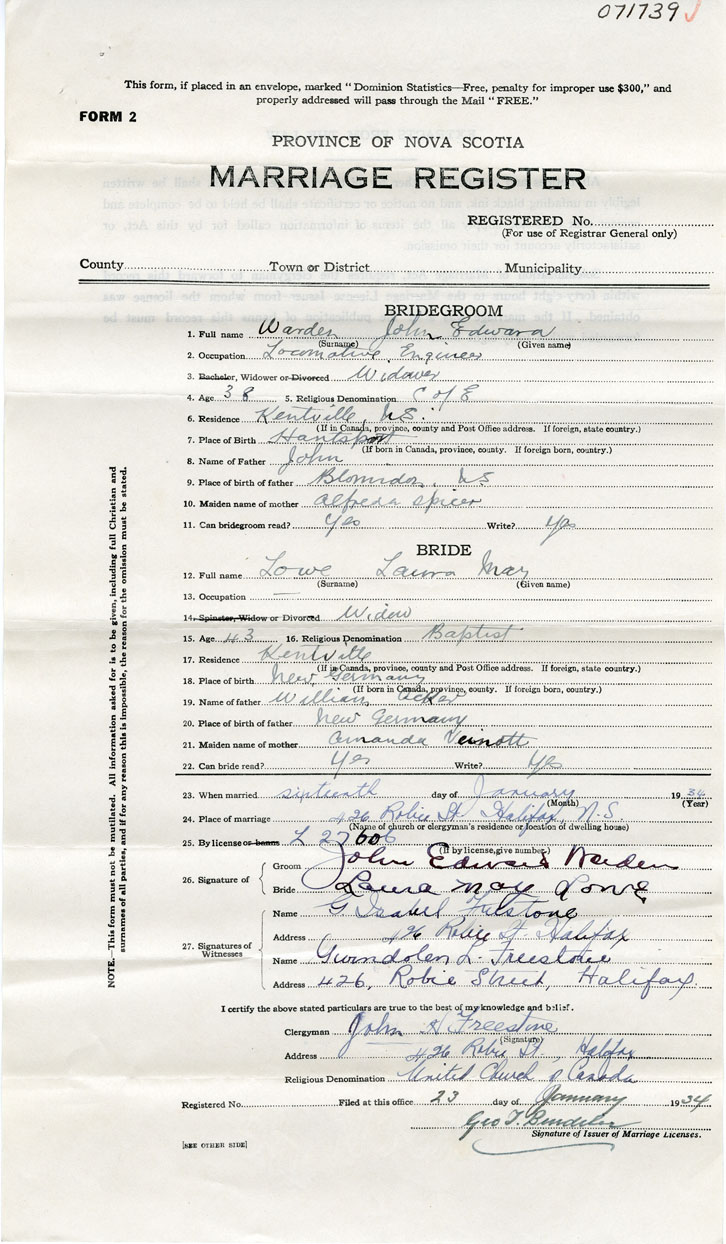 071739
This form, if placed in an envelope, marked "Dominion Statistics—Free, penalty for improper use $300," and
properly addressed will pass through the Mail "FREE."
FORM 2
PROVINCE OF NOVA SCOTIA
MARRIAGE REGISTER
REGISTERED No.
(For use of Registrar General only)
County Town or District Municipality
BRIDEGROOM
1. Full name Warden John Edward
(Surname) (Given name)
2. Occupation Locomotive Engineer
3. Bachelor, Widower or Divorced Widower
4. Age 38 5. Religious Denomination C of E
6. Residence Kentville, N.S.
(If in Canada, province, county and Post Office address. If foreign, state country.)
7. Place of Birth Hantsport
(If born in Canada, province, county. If foreign born, country.)
8. Name of Father John
9. Place of birth of father Blomidon, NS
10. Maiden name of mother Alfreda Spicer
11. Can bridegroom read? Yes Write? Yes
BRIDE
12. Full name Lowe Laura May
(Surname) (Given name)
13. Occupation —
14. Spinster, Widow or Divorced Widow
15. Age 43 16. Religious Denomination Baptist
17. Residence Kentville
(If in Canada, province, county and Post Office address. If foreign, state country.)
18. Place of birth New Germany
(If born in Canada, province, county. If foreign born, country.)
19. Name of father William Acker
20. Place of birth of father New Germany
21. Maiden name of mother Amanda Veinott
22. Can bride read? Yes Write? Yes
23. When married sixteenth day of January 1934
(Month) (Year)
24. Place of marriage 426 Robie St. Halifax, N.S.
(Name of church or clergyman's residence or location of dwelling house)
25. By license or banns L 27606
(If by license, give number.)
26. Signature of
Groom John Edward Warden
Bride Laura May Lowe
27. Signatures of
Witnesses
Name G. Isabel Freestone
Address 426 Robie St. Halifax
Name Gwendolen L. Freestone
Address 426, Robie Street, Halifax.
I certify the above stated particulars are true to the best of my knowledge and belief.
Clergyman John H Freestone
(Signature)
Address 426 Robie St, Halifax
Religious Denomination United Church of Canada
Registered No. Filed at this office 23 day of January 1934
Geo T.
Signature of Issuer of Marriage Licenses.
[SEE OTHER SIDE]
NOTE.—This form must not be mutilated. All information asked for is to be given, including full Christian and
surnames of all parties, and if for any reason this is impossible, the reason for the omission must be stated.